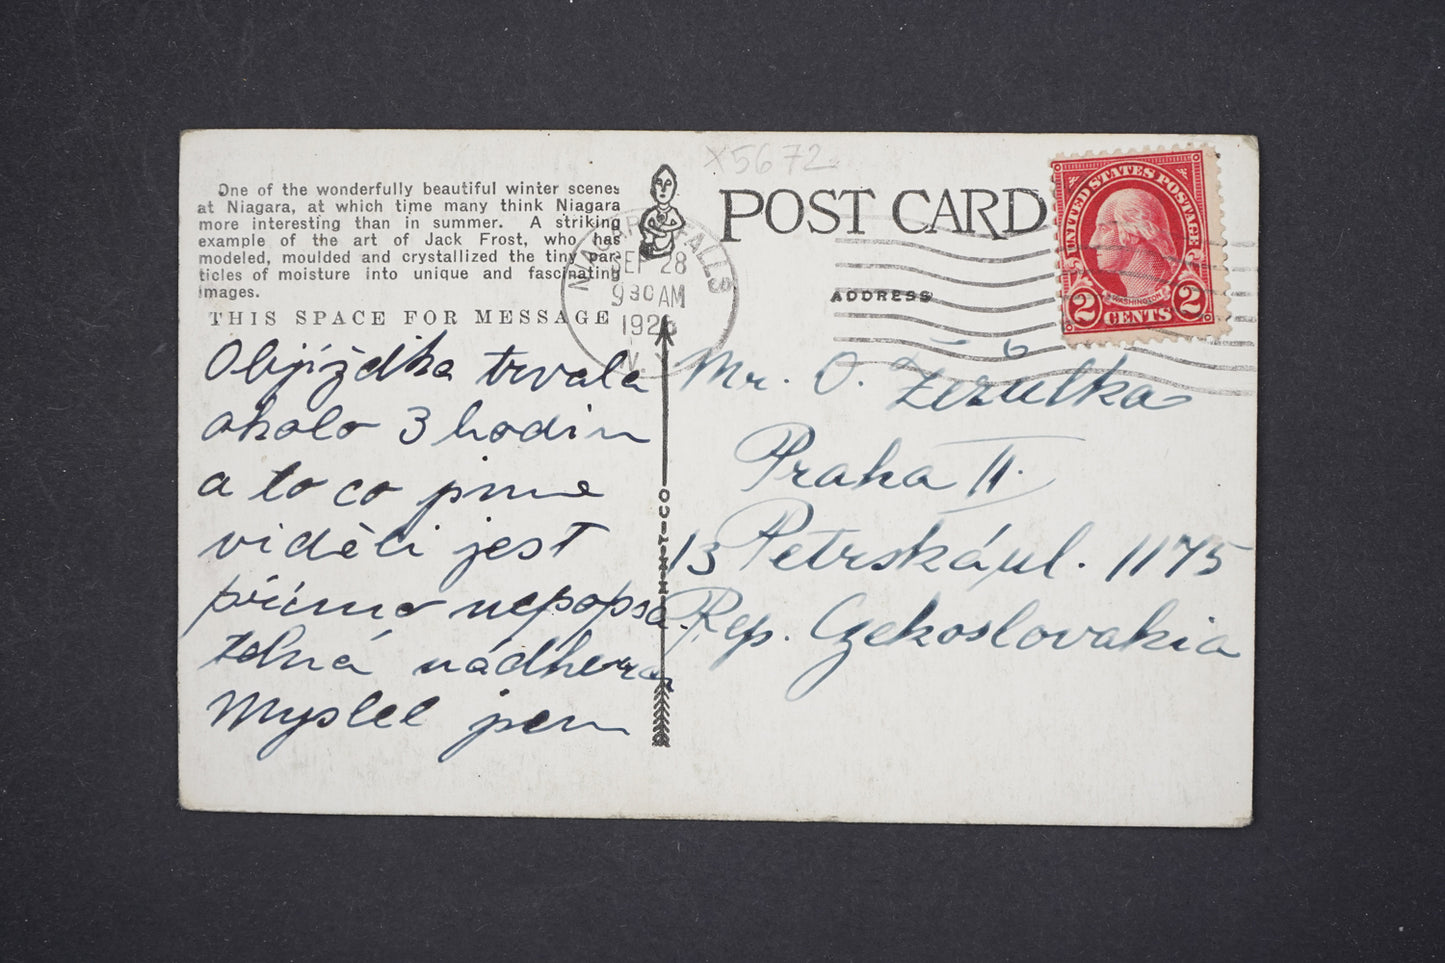 x5672
One of the wonderfully beautiful winter scenes
at Niagara, at which time many think Niagara
more interesting than in summer. A striking
example of the art of Jack Frost, who has
modeled, moulded and crystallized the tiny par-
ticles of moisture into unique and fascinating
images.
THIS SPACE FOR MESSAGE
Objížďka trvala
okolo 3 hodin
a to co jsme
viděli jest
přímo nepopsa-
telná nádhera
Myslel jsem
H-H-T-CO
NIAGARA FALLS
SEP 28
9 30 AM
N.Y.
POST CARD
ADDRESS
UNITED STATES POSTAGE
WASHINGTON
2 CENTS 2
Mr. O. Žežulka
Praha II.
13 Petrská ul. 1175
Rep. Czekoslovakia